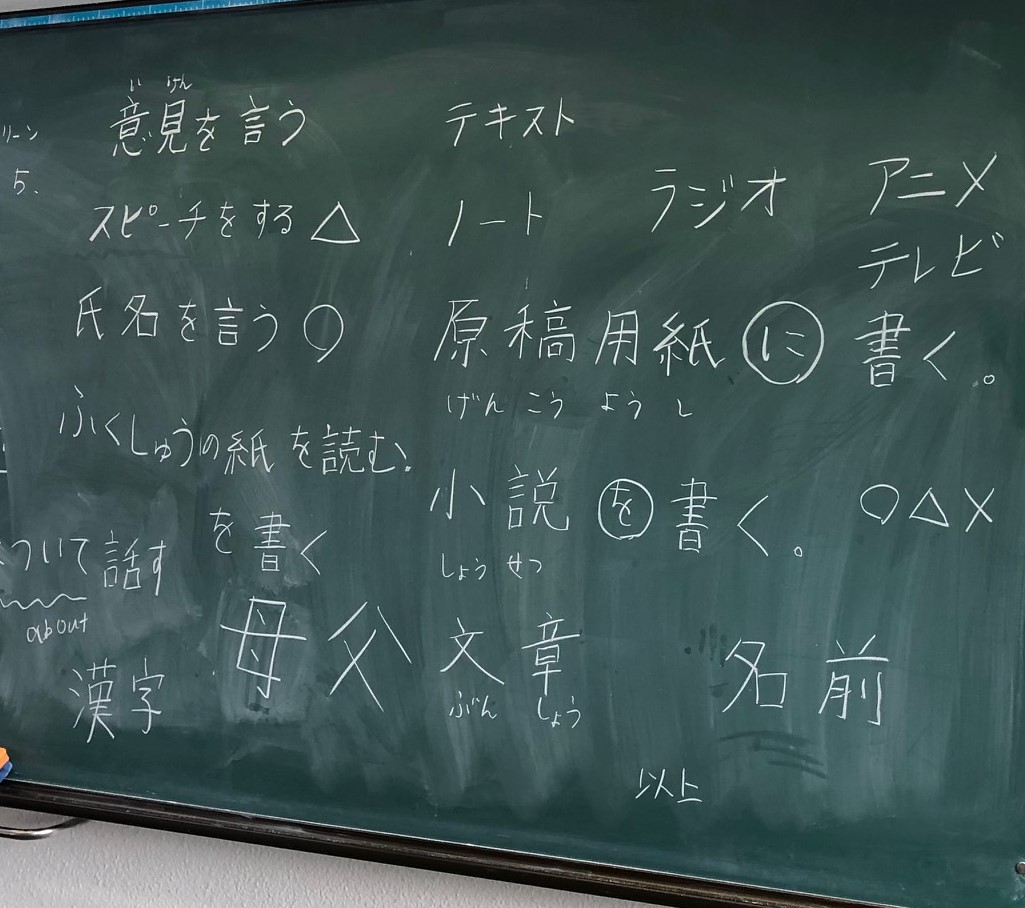 いけん
意見を言う
リーン
5.
スピーチをする△
氏名を言う○
ふくしゅうの紙を読む。
を書く
ついて話す
about
母父
漢字
テキスト
ノート
ラジオ
アニメ
テレビ
原稿用紙に書く。
げんこうようし
小説を書く。
しょうせつ
○△×
文章
ぶんしょう
名前
以上